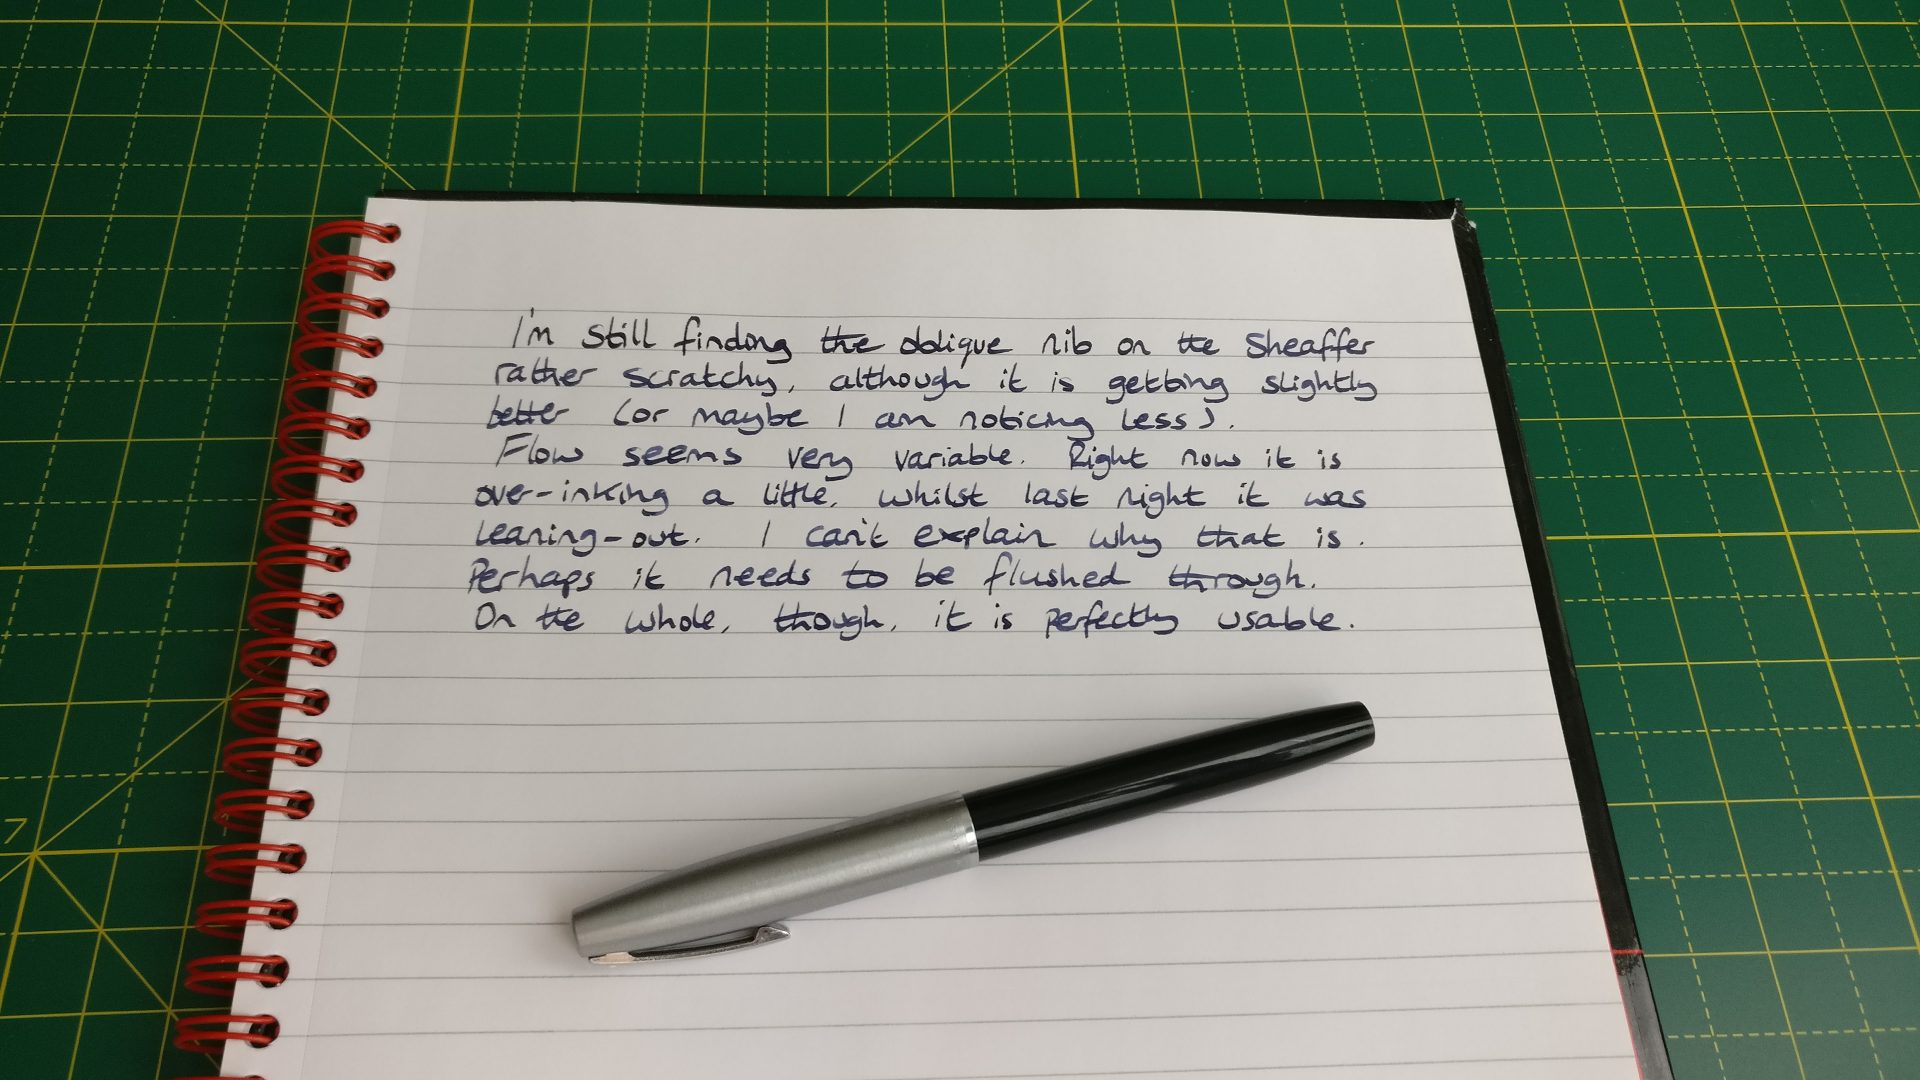 I'm still finding the oblique nib on the Sheaffer
rather scratchy, although it is getting slightly
better (or maybe I am noticing less).
Flow seems very variable. Right now it is
over-inking a little, whilst last night it was
leaning-out. I can't explain why that is.
Perhaps it needs to be flushed through.
On the whole, though, it is perfectly usable.
7